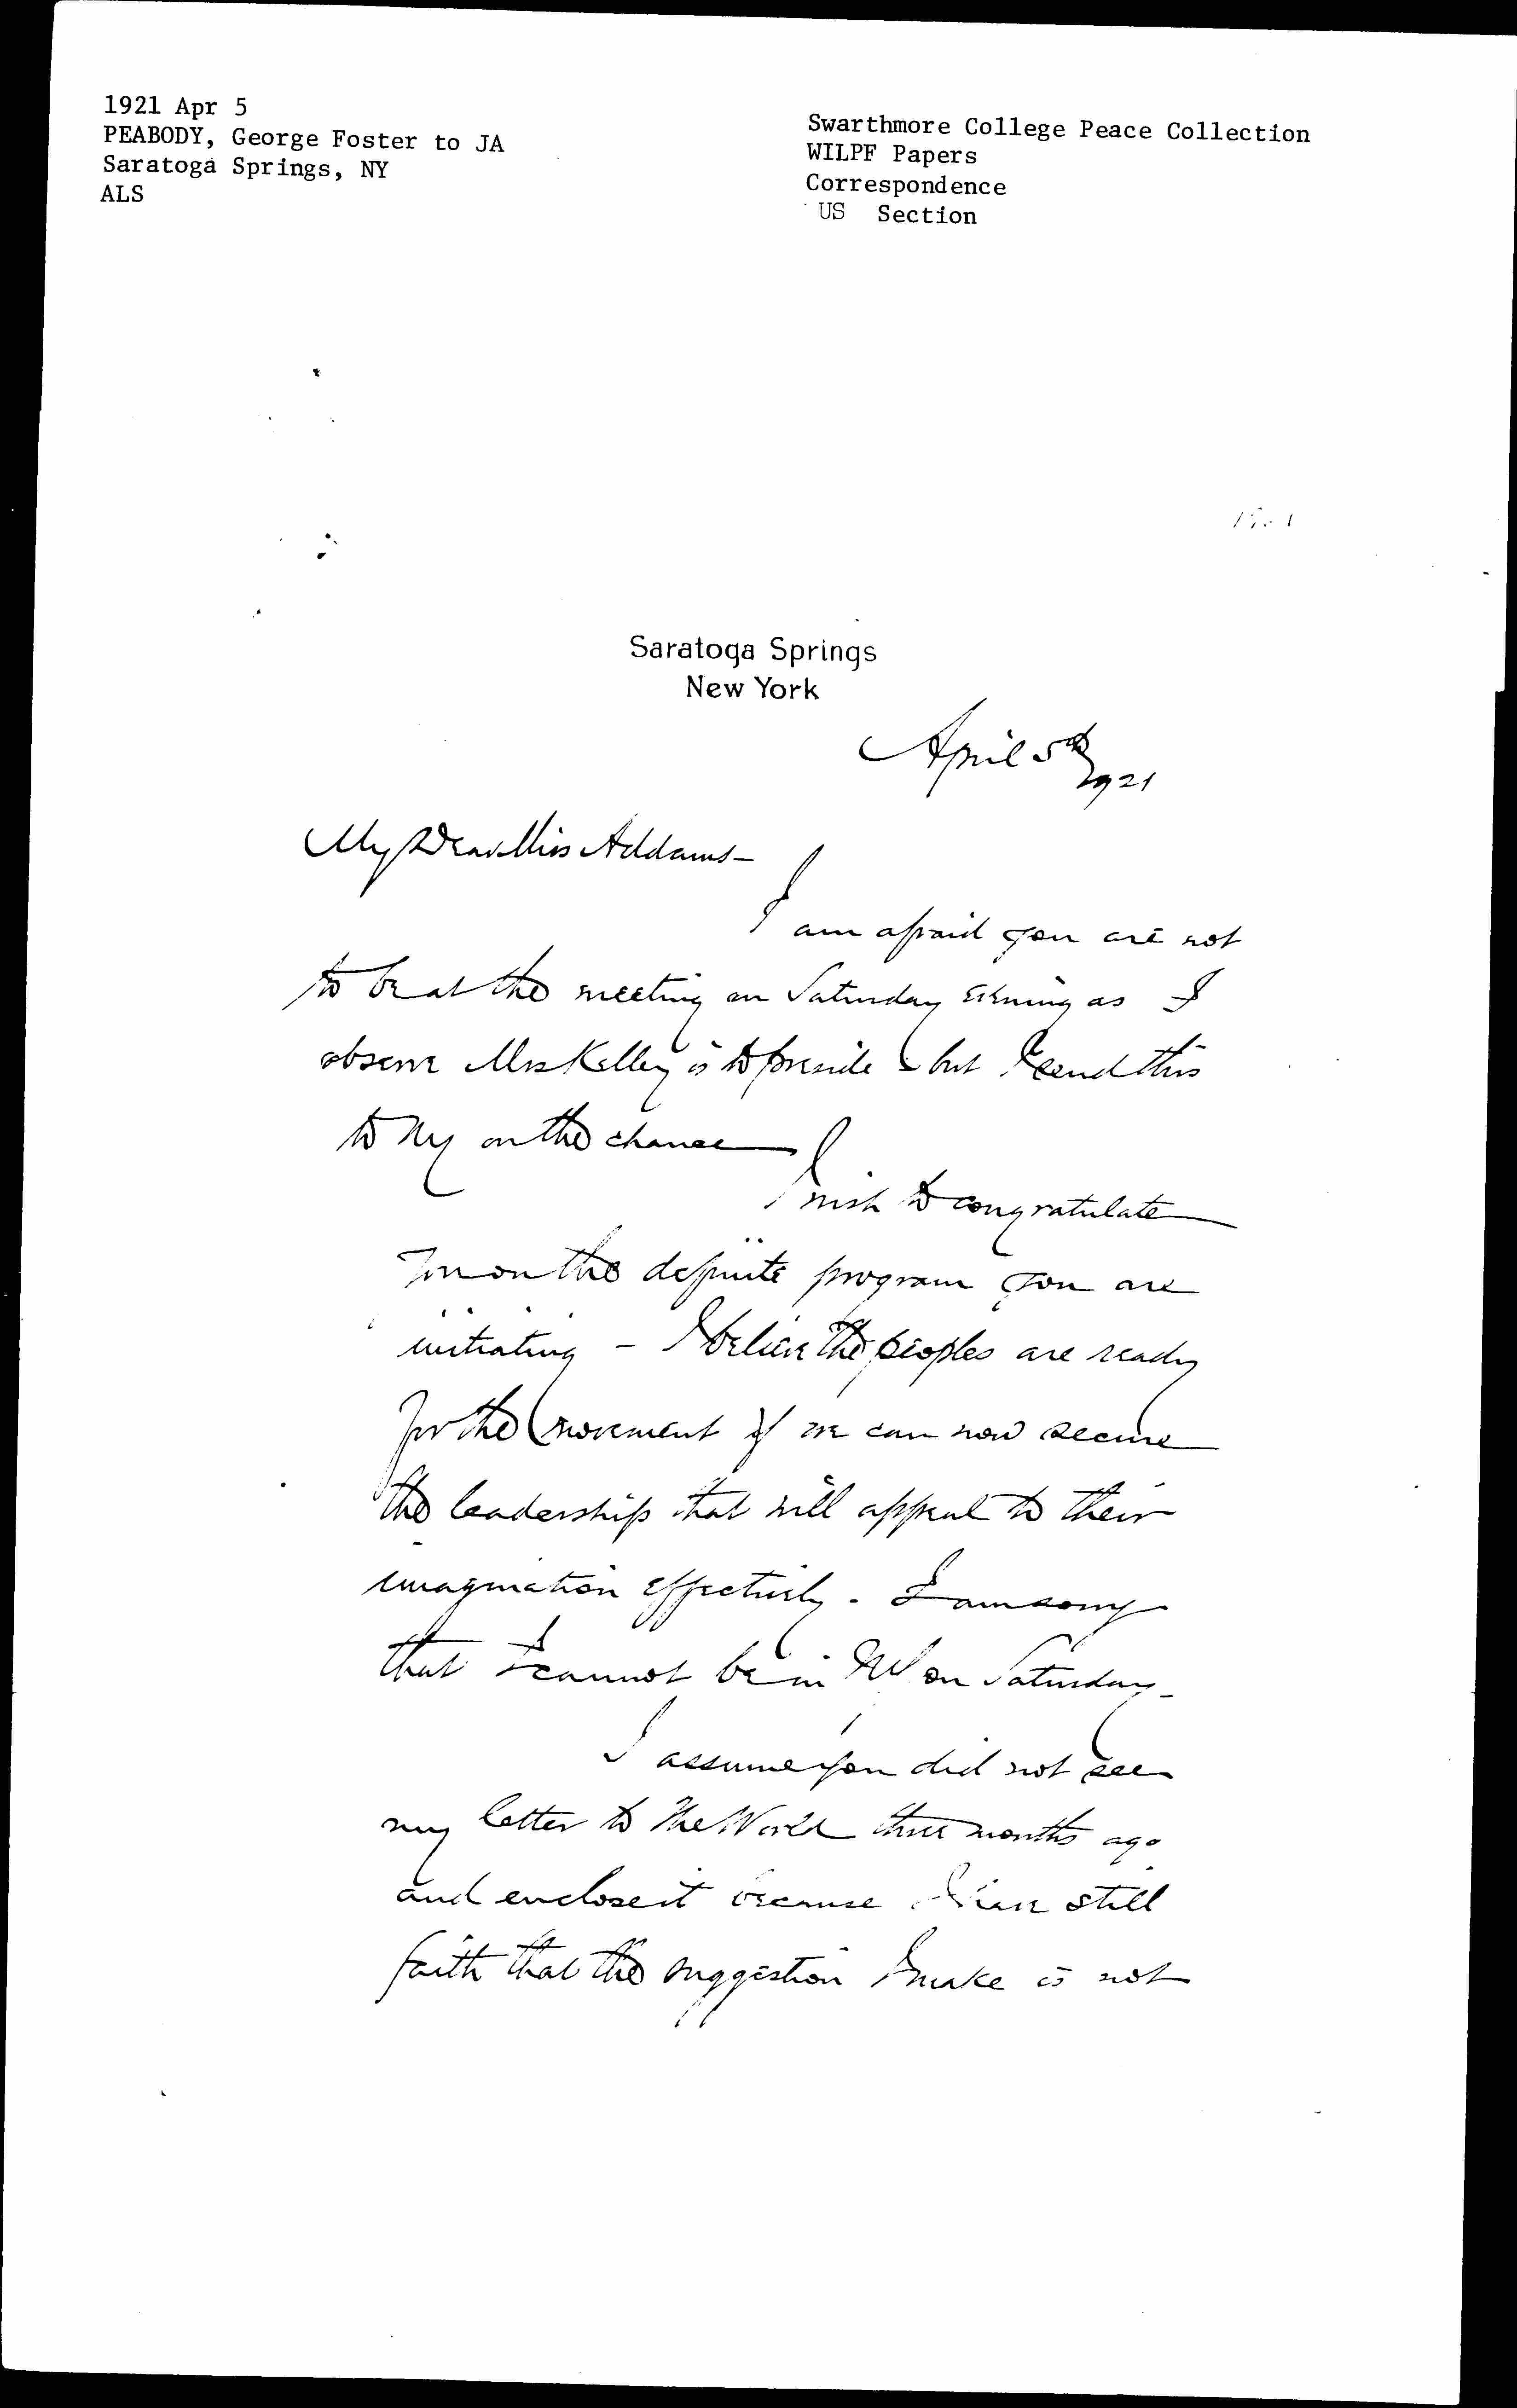 1921 Apr 5
PEABODY, George Foster to JA
Saratoga Springs, NY
ALS
Swarthmore College Peace Collection
WILPF Papers
Correspondence
US Section
Saratoga Springs
New York
April 5th
1921
My Dear Miss Addams—
I am afraid you are not
to be at the meeting on Saturday evening as I
observe Mrs Kelley is to preside but I send this
to NY on the chance
I wish to congratulate
you on the definite program you are
initiating – I believe the peoples are ready
for the movement if we can now secure
the leadership that will appeal to their
imagination effectively. I am sorry
that I cannot be in NY on Saturday—
I assume you did not see
my letter to The World three months ago
and enclose it because I have still
faith that the suggestion I make is not